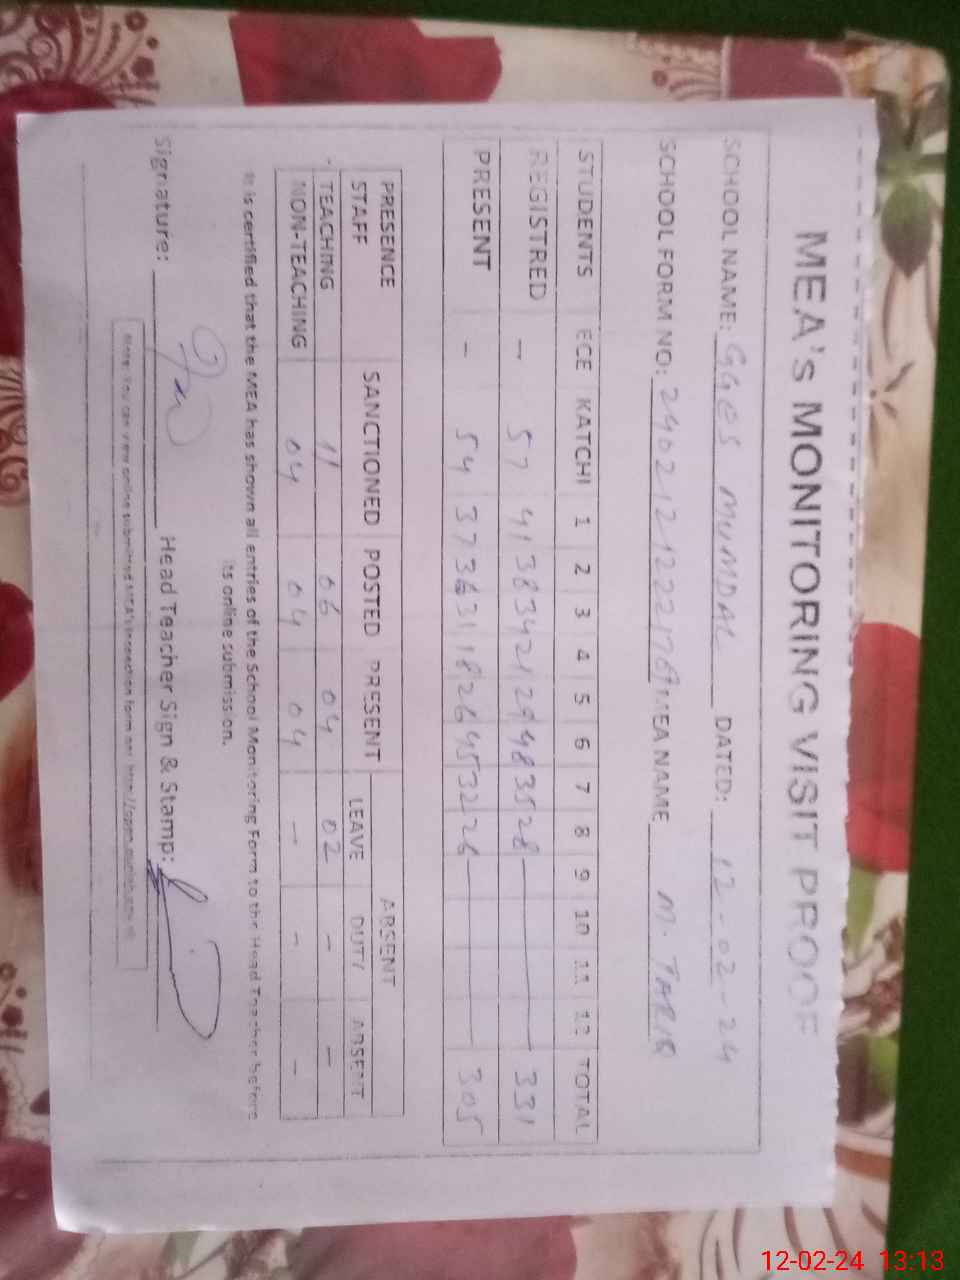 MEA'S MONITORING VISIT PROOF
SCHOOL NAME: GGES MUMDAL DATED: 12-02-24
SCHOOL FORM NO: MEA NAME M. TARIQ
STUDENTS ECE KATCHI 1 2 3 4 5 6 7 8 9 10 11 12 TOTAL
REGISTRED - 57 41 38 34 21 29 48 35 28 331
PRESENT - 54 37 36 31 18 26 45 32 26 305
PRESENCE ABSENT
STAFF SANCTIONED POSTED PRESENT LEAVE DUTY ABSENT
TEACHING 11 06 04 02 - -
NON-TEACHING 04 04 04 - - -
It is certified that the MEA has shown all entries of the School Monitoring Form to the Head Teacher before
its online submission.
Signature: Head Teacher Sign & Stamp:
Note: You can view online submitted MEA's inspection form on: http://open.punjab.gov.pk
12-02-24 13:13